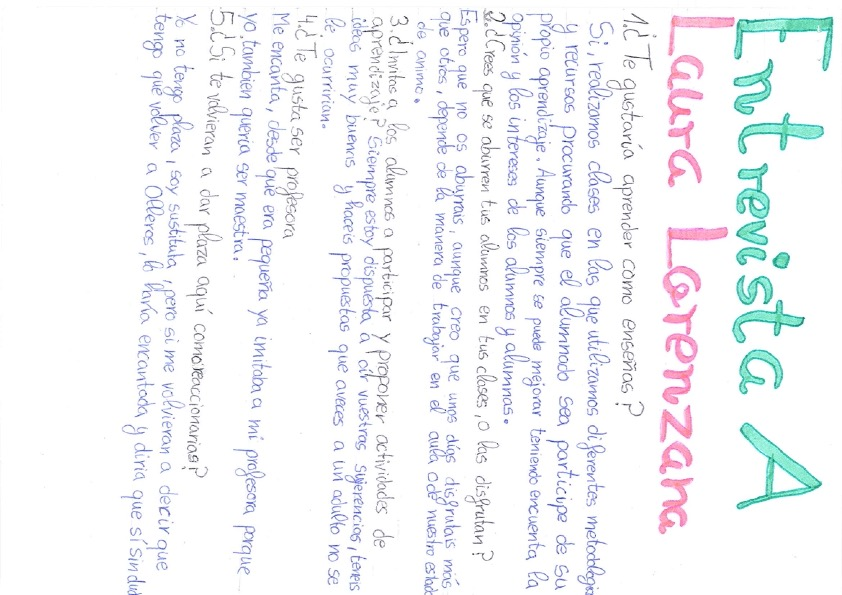 Entrevista A
Laura Lorenzana
1.¿Te gustaría aprender como enseñas?
Si, realizamos clases en las que utilizamos diferentes metodologia
y recursos procurando que el alumnado sea participe de su
propio aprendizaje. Aunque siempre se puede mejorar teniendo encuenta la
opinión y los intereses de los alumnos y alumnas.
2.¿Crees que se aburren tus alumnos en tus clases, o las disfrutan?
Espero que no os aburrais, aunque creo que unos días disfrutais más
que otros, depende de la manera de trabajar en el aula o de nuestro estado
de animo.
3.¿Invitas a los alumnos a participar y proponer actividades de
aprendizaje? Siempre estoy dispuesta a oír vuestras sujerencias, teneis
ideas muy buenas y haceis propuestas que aveces a un adulto no se
le ocurririan.
4.¿Te gusta ser profesora
Me encanta, desde que era pequeña ya imitaba a mi profesora porque
yo tambien quería ser maestra.
5.¿Si te volvieran a dar plaza aquí como reaccionarias?
Yo no tengo plaza, soy sustituta, pero si me volvieran a decir que
tengo que volver a Olleros, lo haría encantada y diria que sí sin dud